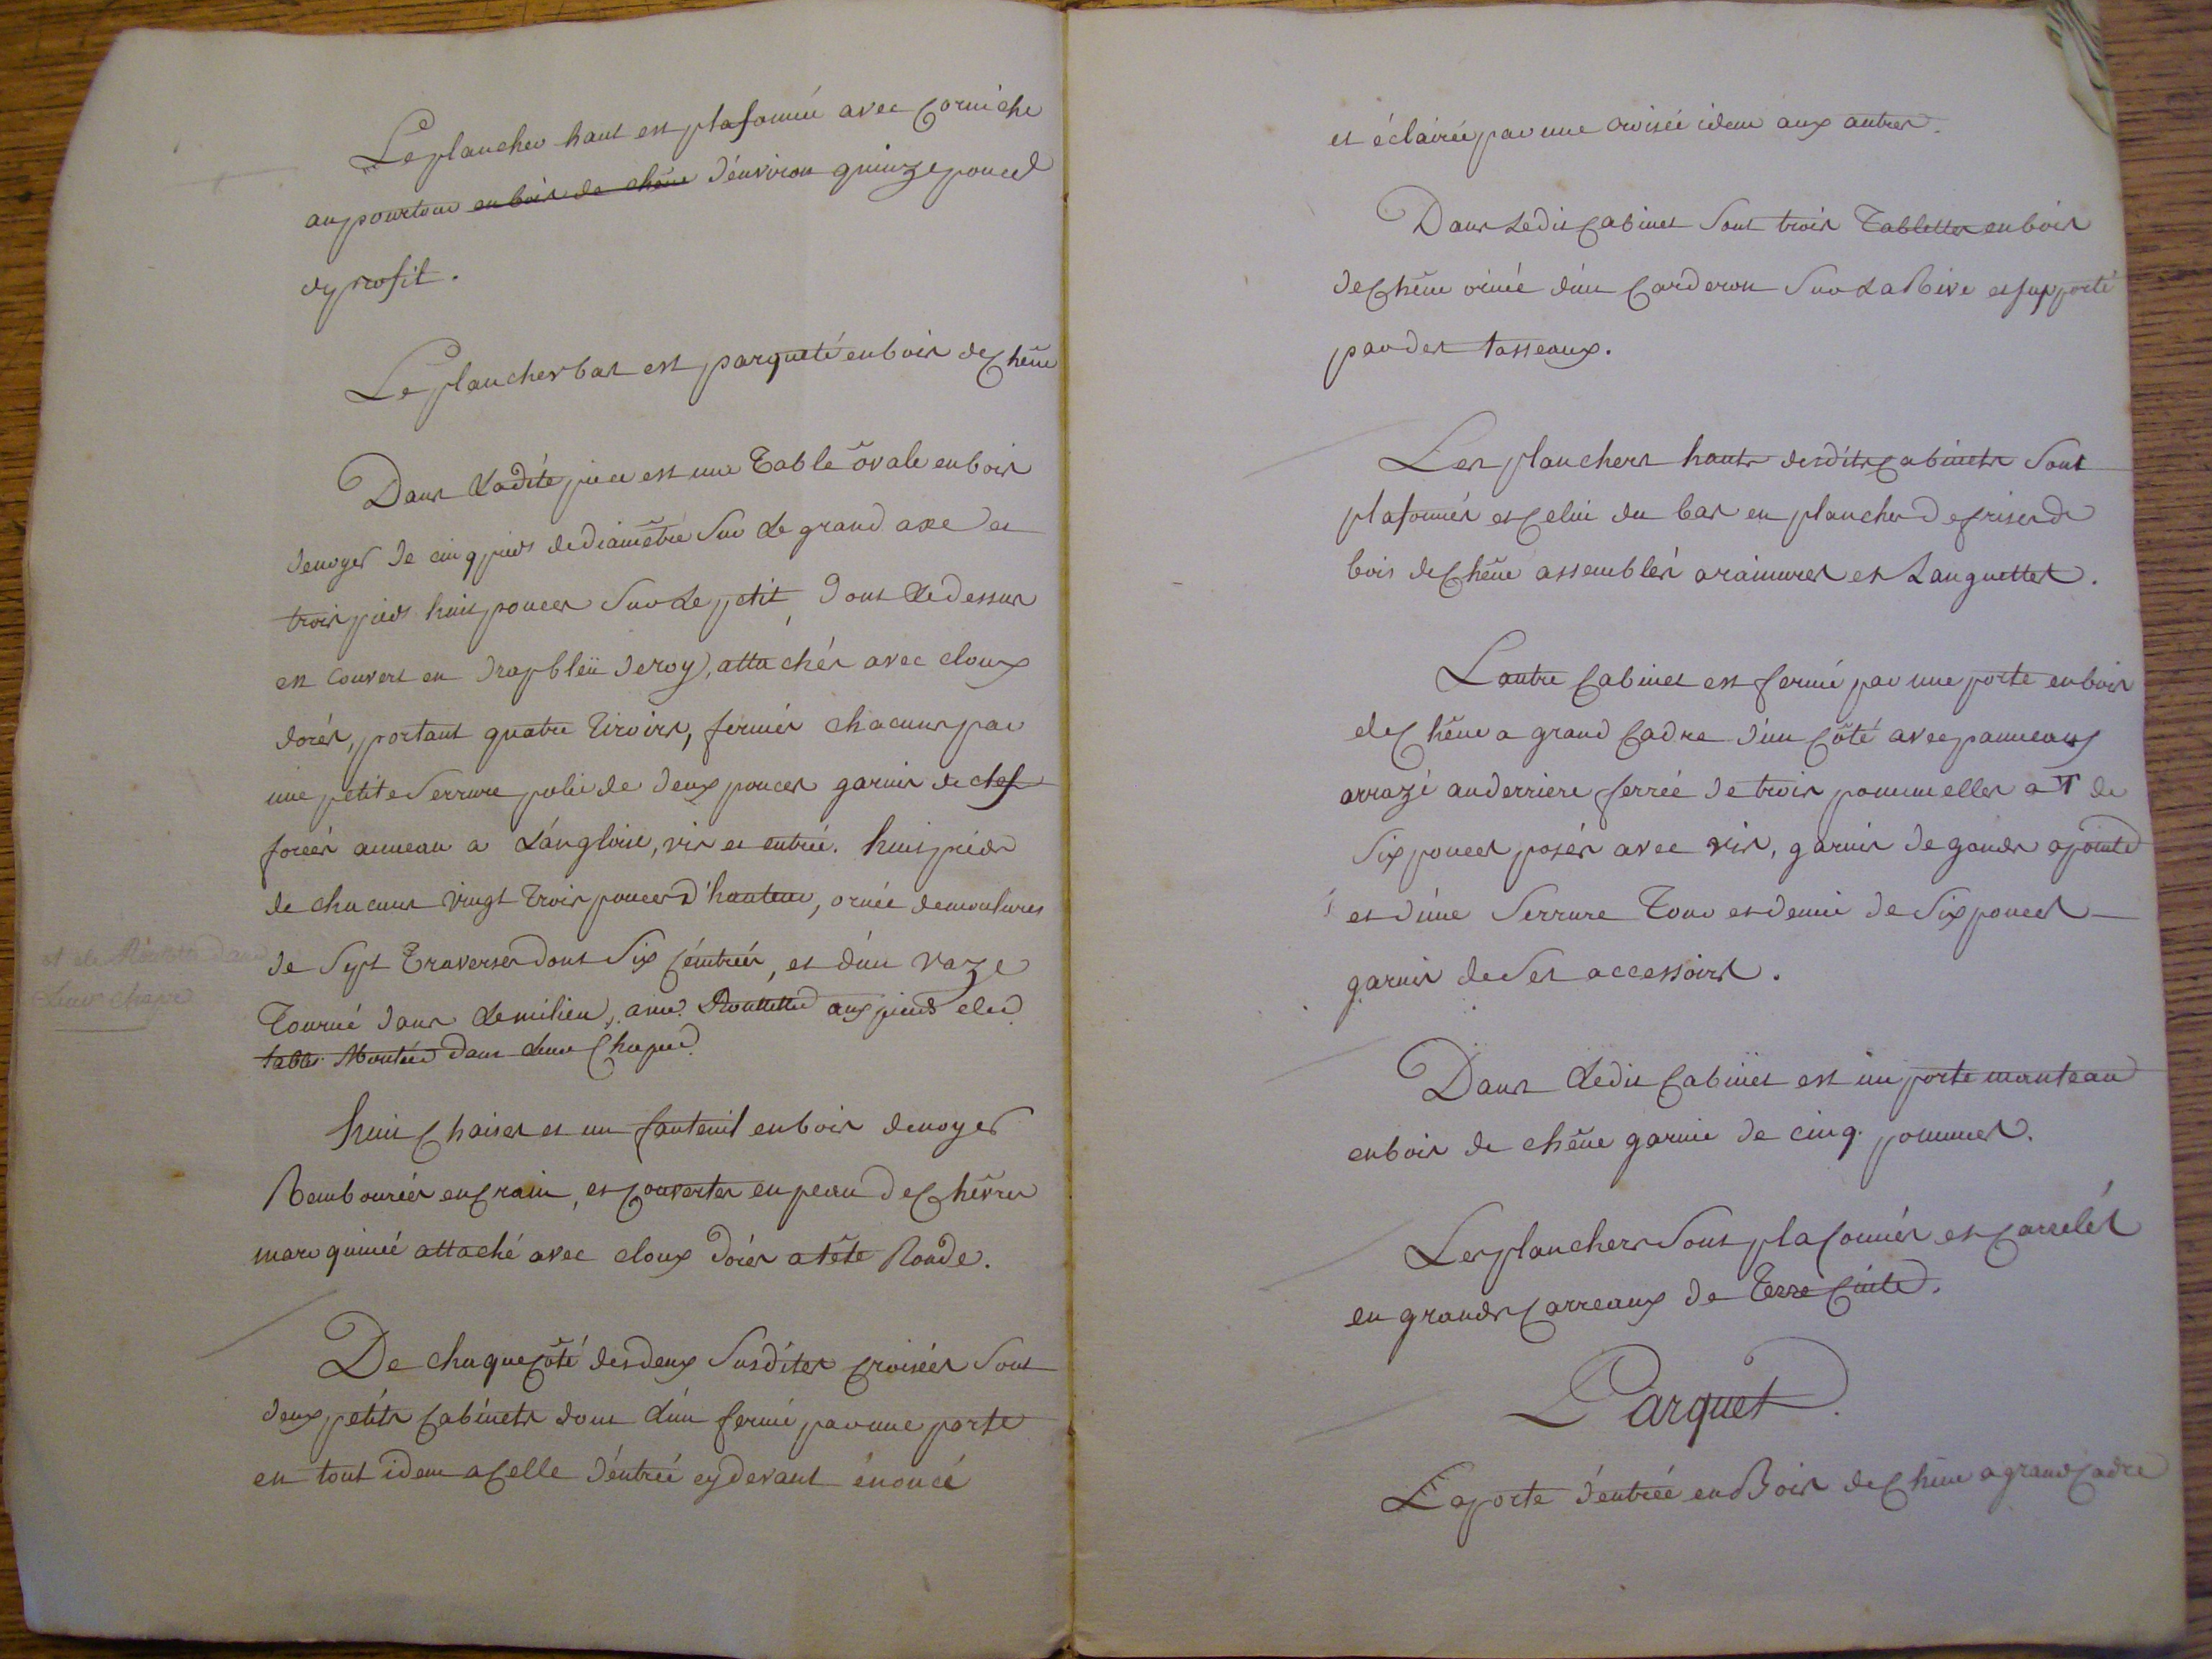 Le plancher haut est plafonné avec Corniche
au pourtour en bois de chêne d'environ quinze pouces
de profil.
Le plancher bas est parqueté en bois de Chêne
Dans Ladite piece est une Table ovale en bois
de noyer de cinq pieds de diamêtre Sur Le grand axe et
trois pieds huit pouces Sur Le petit, dont Le dessus
est Couvert en drap bleü de roy, attachés avec cloux
dorés, portant quatre tiroirs, fermés chacuns par
une petite Serrure polie de deux pouces garnis de clef
forées anneau a L'angloise, vis et entrée. huit pieds
de chacuns vingt trois pouces d'hauteur, ornée de moulures
de Sept Traverses dont Six Ceintrées, et d'un vaze
Tourné dans Le milieu, avec Roulettes aux pieds de la
table Montées dans Leur Chapes.
et de Roulettes dans
Leur chape
huit Chaises et un fauteuil en bois de noyer
Rembourées en Crain, et Couvertes en peau de Chêvres
maroquinée attaché avec cloux dorés a tête Ronde.
De chaque Côté des deux Susdites Croisées Sont
deux petits Cabinets dont L'un fermé par une porte
en tout idem a Celle d'entrée cy devant énoncé
et éclairée par une Croisée idem aux autres.
Dans Ledit Cabinet Sont trois Tablettes en bois
de Chêne ornée d'un Carderon Sur La Rive et supporté
par des tasseaux.
Les planchers hauts desdits Cabinets Sont
plafonnés et Celui du bas en plancher de frises de
bois de Chêne assemblés a rainures et Languettes.
L'autre Cabinet est fermé par une porte en bois
de Chêne a grand Cadre d'un Côté avec panneaux
arrazé au derriere ferrée de trois pommelles a T de
Six pouces posés avec vis, garnis de gonds a pointes
et d'une Serrure Tour et demie de Six pouces
garnis de Ses accessoires.
Dans Ledit Cabinet est un porte manteau
en bois de chêne garnie de cinq pommes.
Les planchers Sont plafonnés et Carrelés
en grands Carreaux de Terre Cuite.
Parquet.
La porte d'entrée en Bois de Chêne a grand Cadre